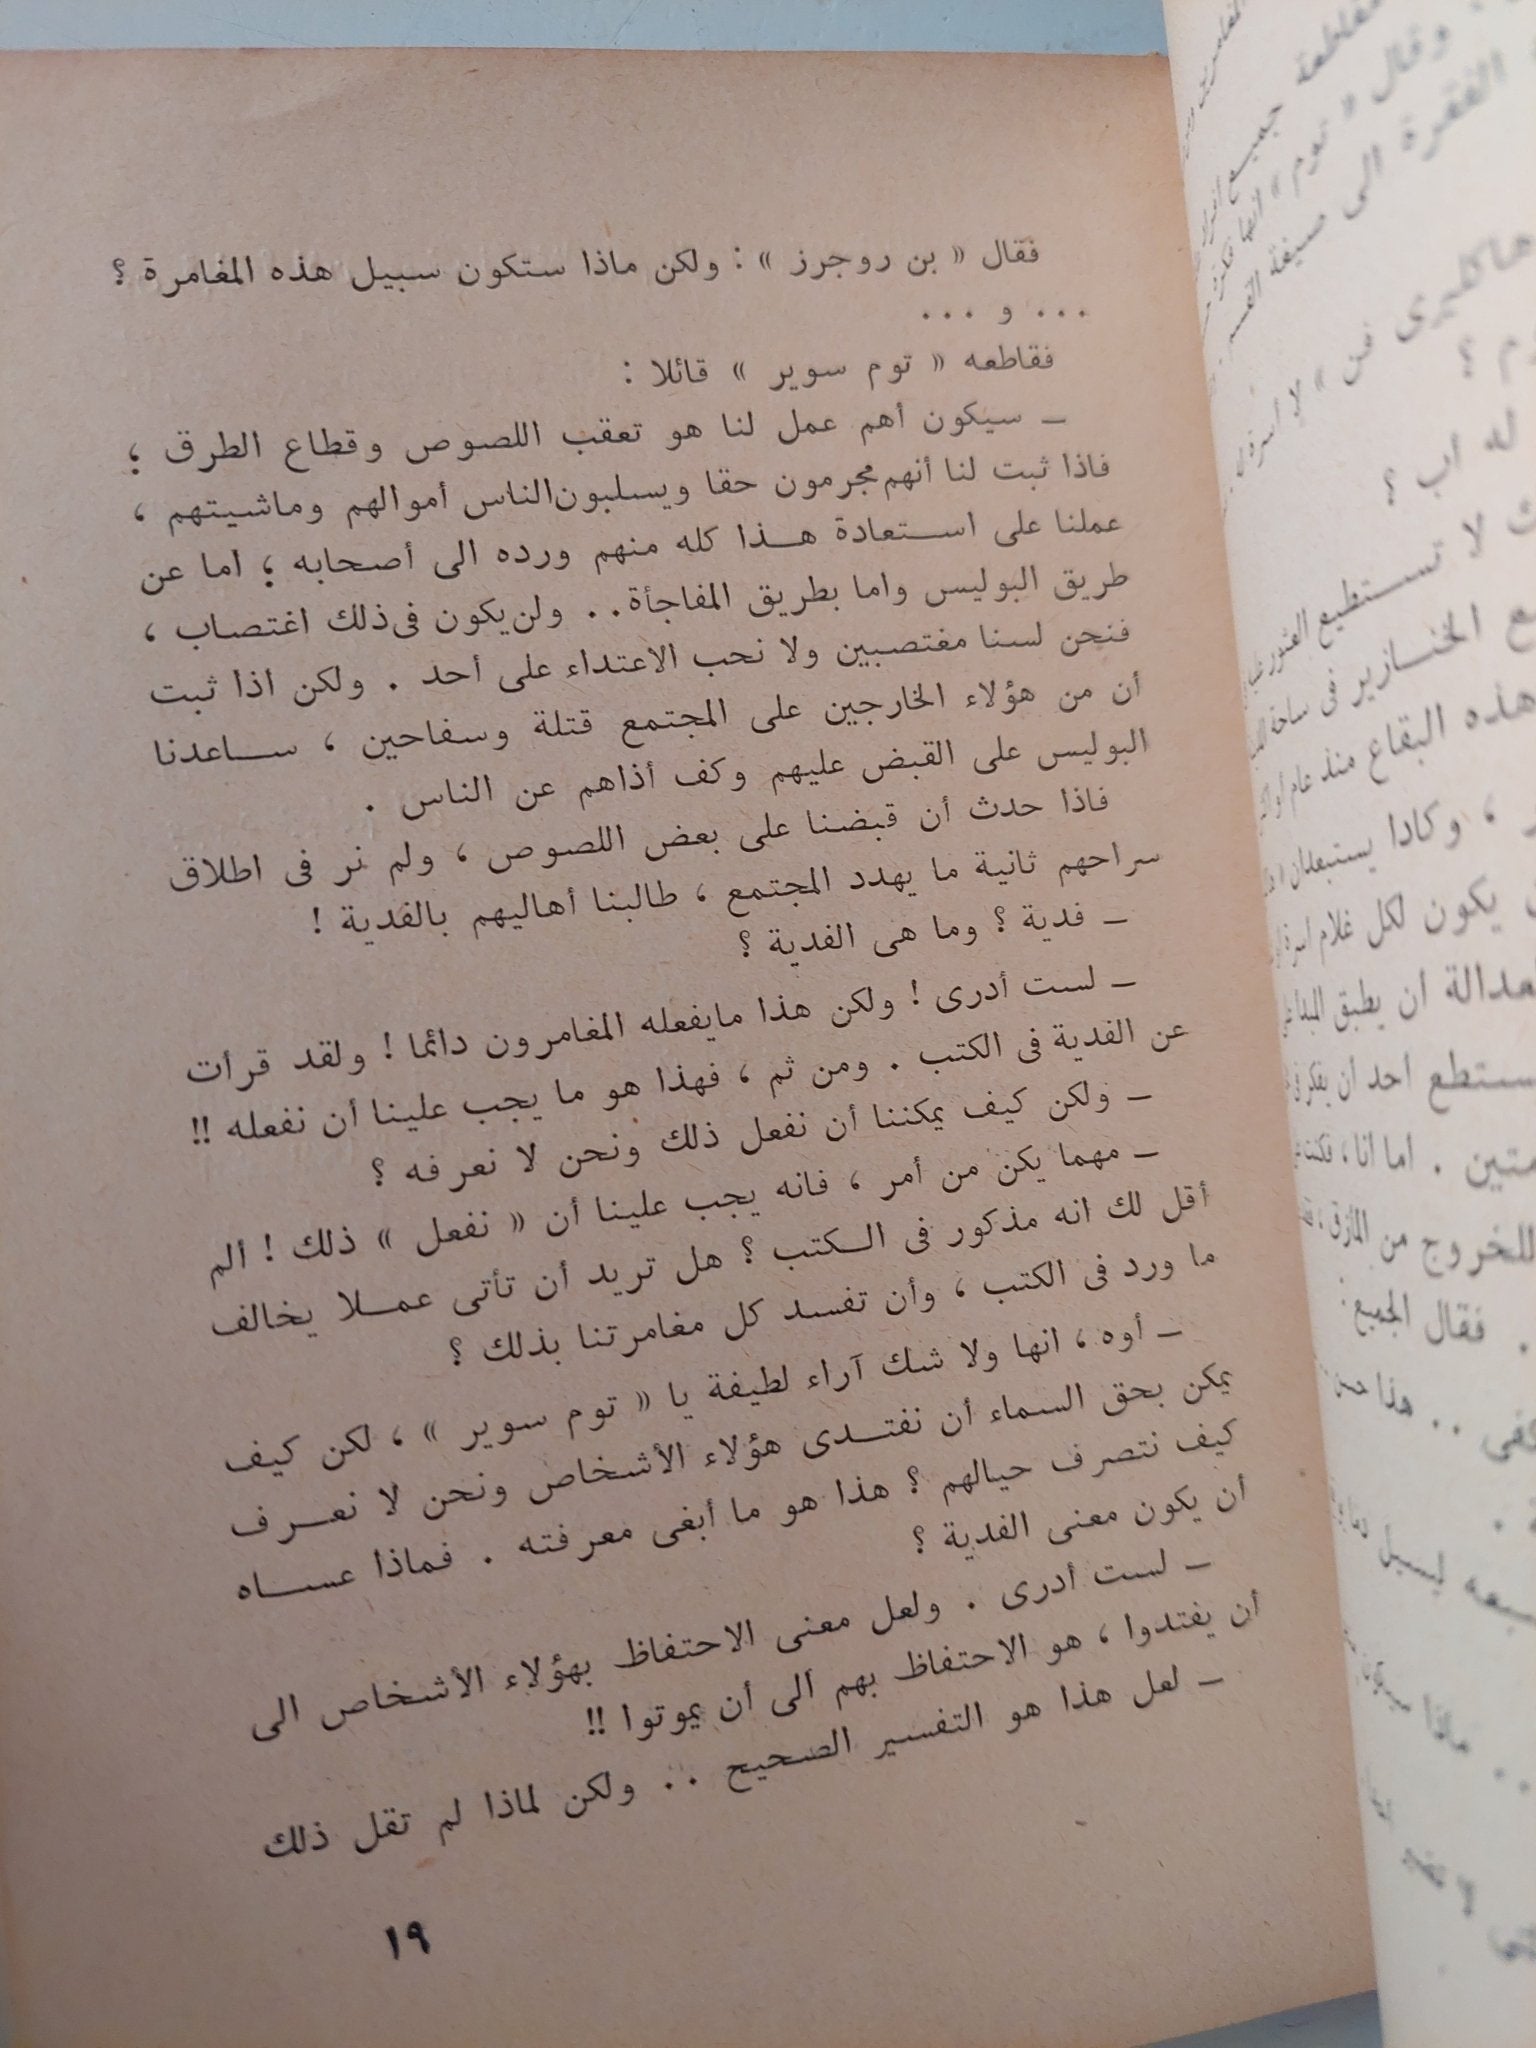 فقال « بن روجرز » : ولكن ماذا ستكون سبيل هذه المغامرة ؟
... و ...
فقاطعه « توم سوير » قائلا :
ــ سيكون أهم عمل لنا هو تعقب اللصوص وقطاع الطرق ؛
فاذا ثبت لنا أنهم مجرمون حقا ويسلبون الناس أموالهم وماشيتهم ،
عملنا على استعادة هذا كله منهم ورده الى أصحابه ؛ اما عن
طريق البوليس واما بطريق المفاجأة .. ولن يكون فى ذلك اغتصاب ،
فنحن لسنا مغتصبين ولا نحب الاعتداء على أحد . ولكن اذا ثبت
أن من هؤلاء الخارجين على المجتمع قتلة وسفاحين ، ساعدنا
البوليس على القبض عليهم وكف أذاهم عن الناس .
فاذا حدث أن قبضنا على بعض اللصوص ، ولم نر فى اطلاق
سراحهم ثانية ما يهدد المجتمع ، طالبنا أهاليهم بالفدية !
ــ فدية ؟ وما هى الفدية ؟
ــ لست أدرى ! ولكن هذا مايفعله المغامرون دائما ! ولقد قرأت
عن الفدية فى الكتب . ومن ثم ، فهذا هو ما يجب علينا أن نفعله !!
ــ ولكن كيف يمكننا أن نفعل ذلك ونحن لا نعرفه ؟
ــ مهما يكن من أمر ، فانه يجب علينا أن « نفعل » ذلك ! ألم
أقل لك انه مذكور فى الكتب ؟ هل تريد أن تأتى عملا يخالف
ما ورد فى الكتب ، وأن تفسد كل مغامرتنا بذلك ؟
ــ أوه ، انها ولا شك آراء لطيفة يا « توم سوير » ، لكن كيف
يمكن بحق السماء أن نفتدى هؤلاء الأشخاص ونحن لا نعرف
كيف نتصرف حيالهم ؟ هذا هو ما أبغى معرفته . فماذا عساه
أن يكون معنى الفدية ؟
ــ لست أدرى . ولعل معنى الاحتفاظ بهؤلاء الأشخاص الى
أن يفتدوا ، هو الاحتفاظ بهم الى أن يموتوا !!
ــ لعل هذا هو التفسير الصحيح .. ولكن لماذا لم تقل ذلك
١٩
مقاطعة جميع
وقال « توم » انها فكرة
الفقرة الى صيغة القسم
هاكلبرى فن » لا أسرة
له اب ؟
لا تستطيع العثور عليه
ع الخنازير فى ساحة
هذه البقاع منذ عام أو
، وكادا يستبعدان
يكون لكل غلام أسرة
ان يطبق المبدأ
ستطع احد أن يفكر فى
. اما أنا ، فكنت
للخروج من المأزق ،
. فقال الجميع :
.. هذا